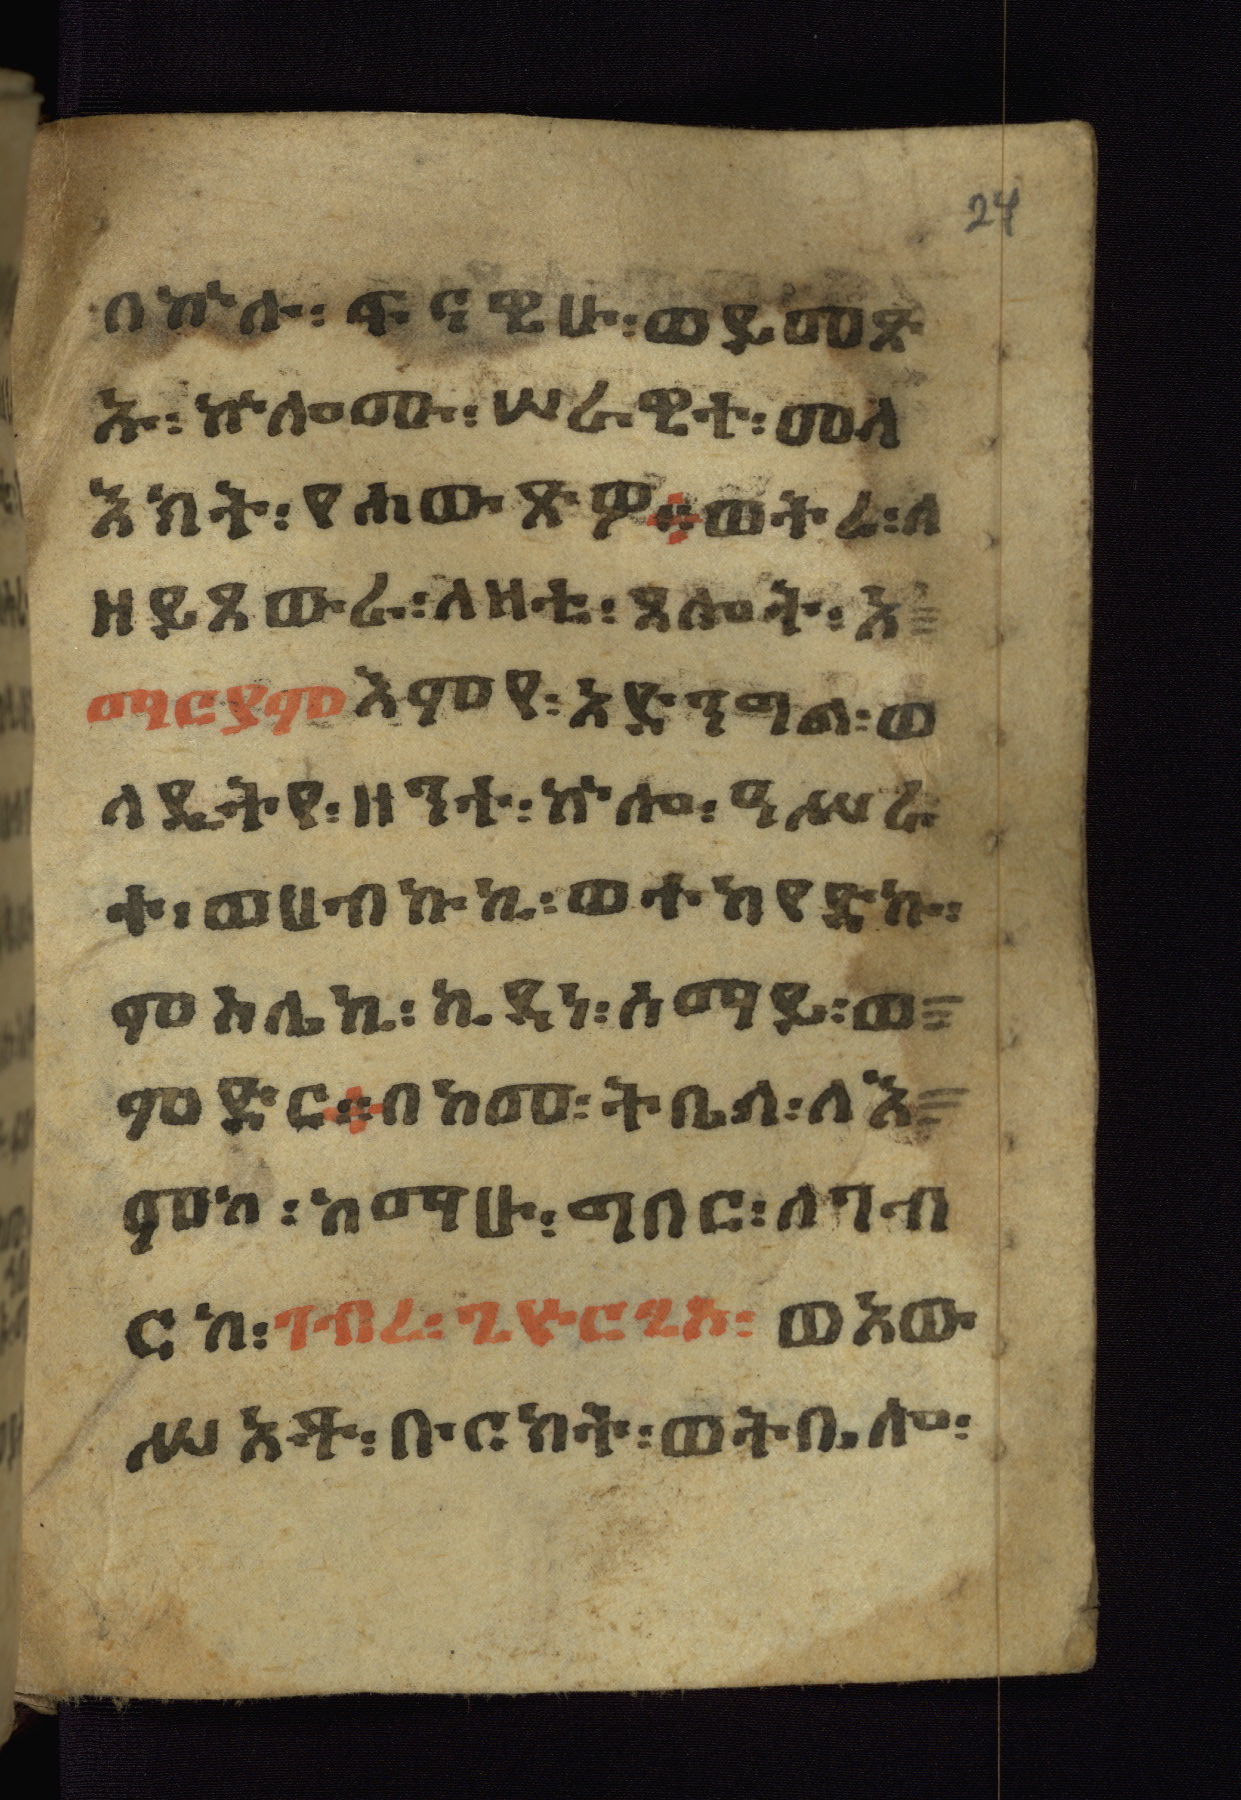 24
በኵሉ፡ ፍናዊሁ፡ወይመጽ
ኡ፡ ኵሎሙ፡ ሠራዊተ፡ መላ
እክት፡የሐውጽዎ።ወትረ፡ለ
ዘይጸውራ፡ለዛቲ፡ ጸሎት፡ እ
ማርያም እምየ፡ እድንግል፡ወ
ላዲትየ፡ዘንተ፡ኵሎ፡ ዓሥራ
ተ፡ወሀብኩኪ፡ወተካየድኩ፡
ምስሌኪ፡ ኪዳነ፡ሰማይ፡ወ
ምድር።በከመ፡ትቤላ፡ለእ
ምከ፡ ከማሁ፡ግበር፡ለገብ
ርከ፡ገብረ፡ጊዮርጊስ፡ ወአው
ሥአት፡ቡርክት፡ወትቤሎ፡